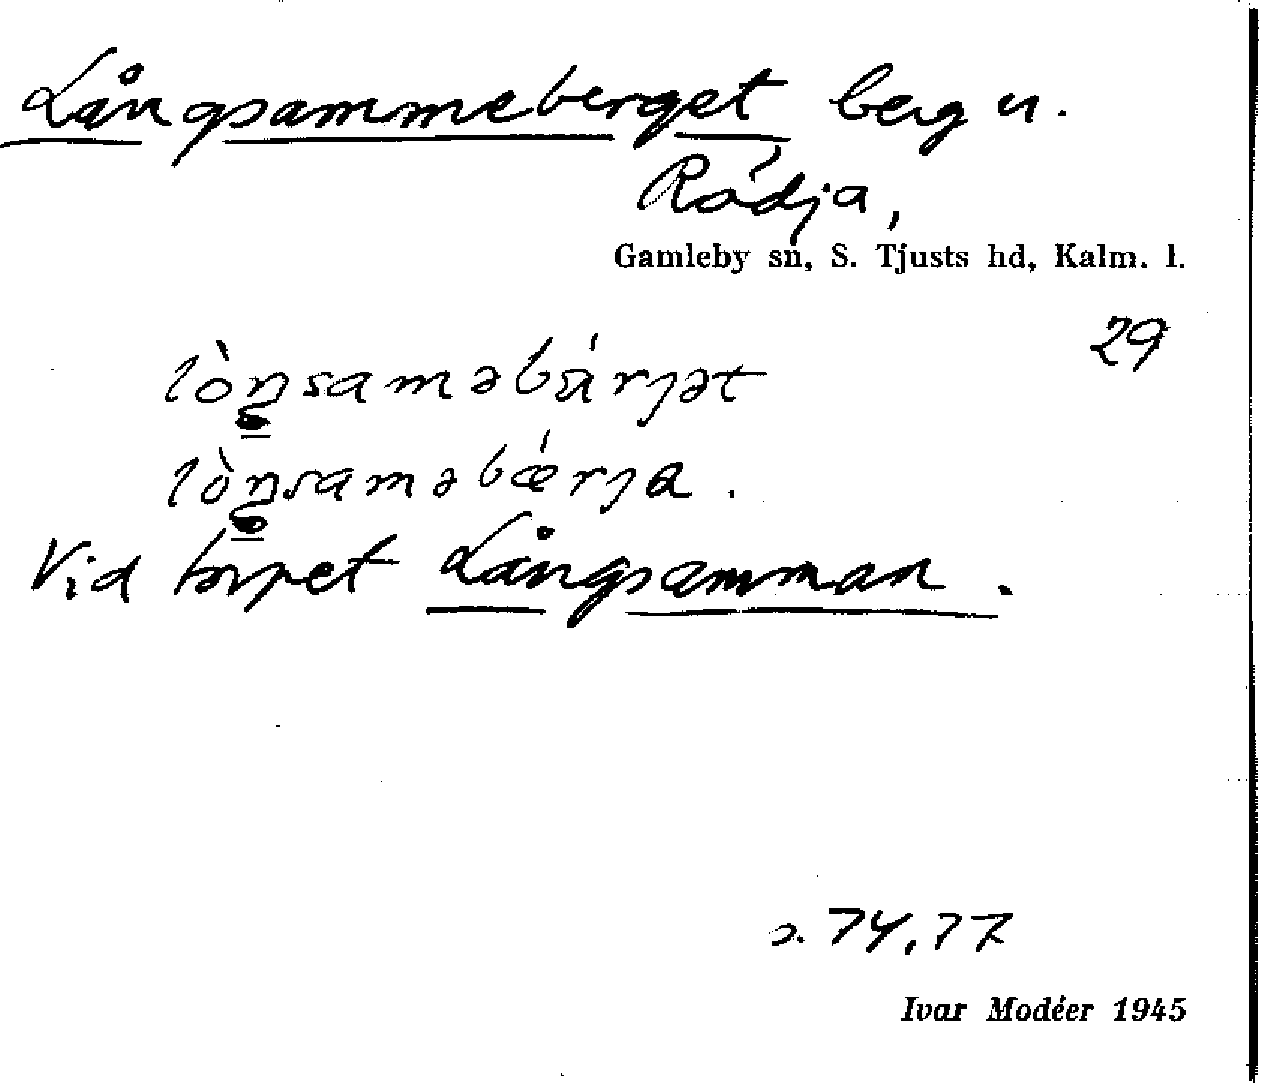 Långsammeberget berg u.
Rödja,
Gamleby sn, S. Tjusts hd, Kalm. l.
29
lòŋsaməbárjət
lòŋsaməbǽrja.
Vid torpet Långsamman.
s. 74, 77
Ivar Modéer 1945